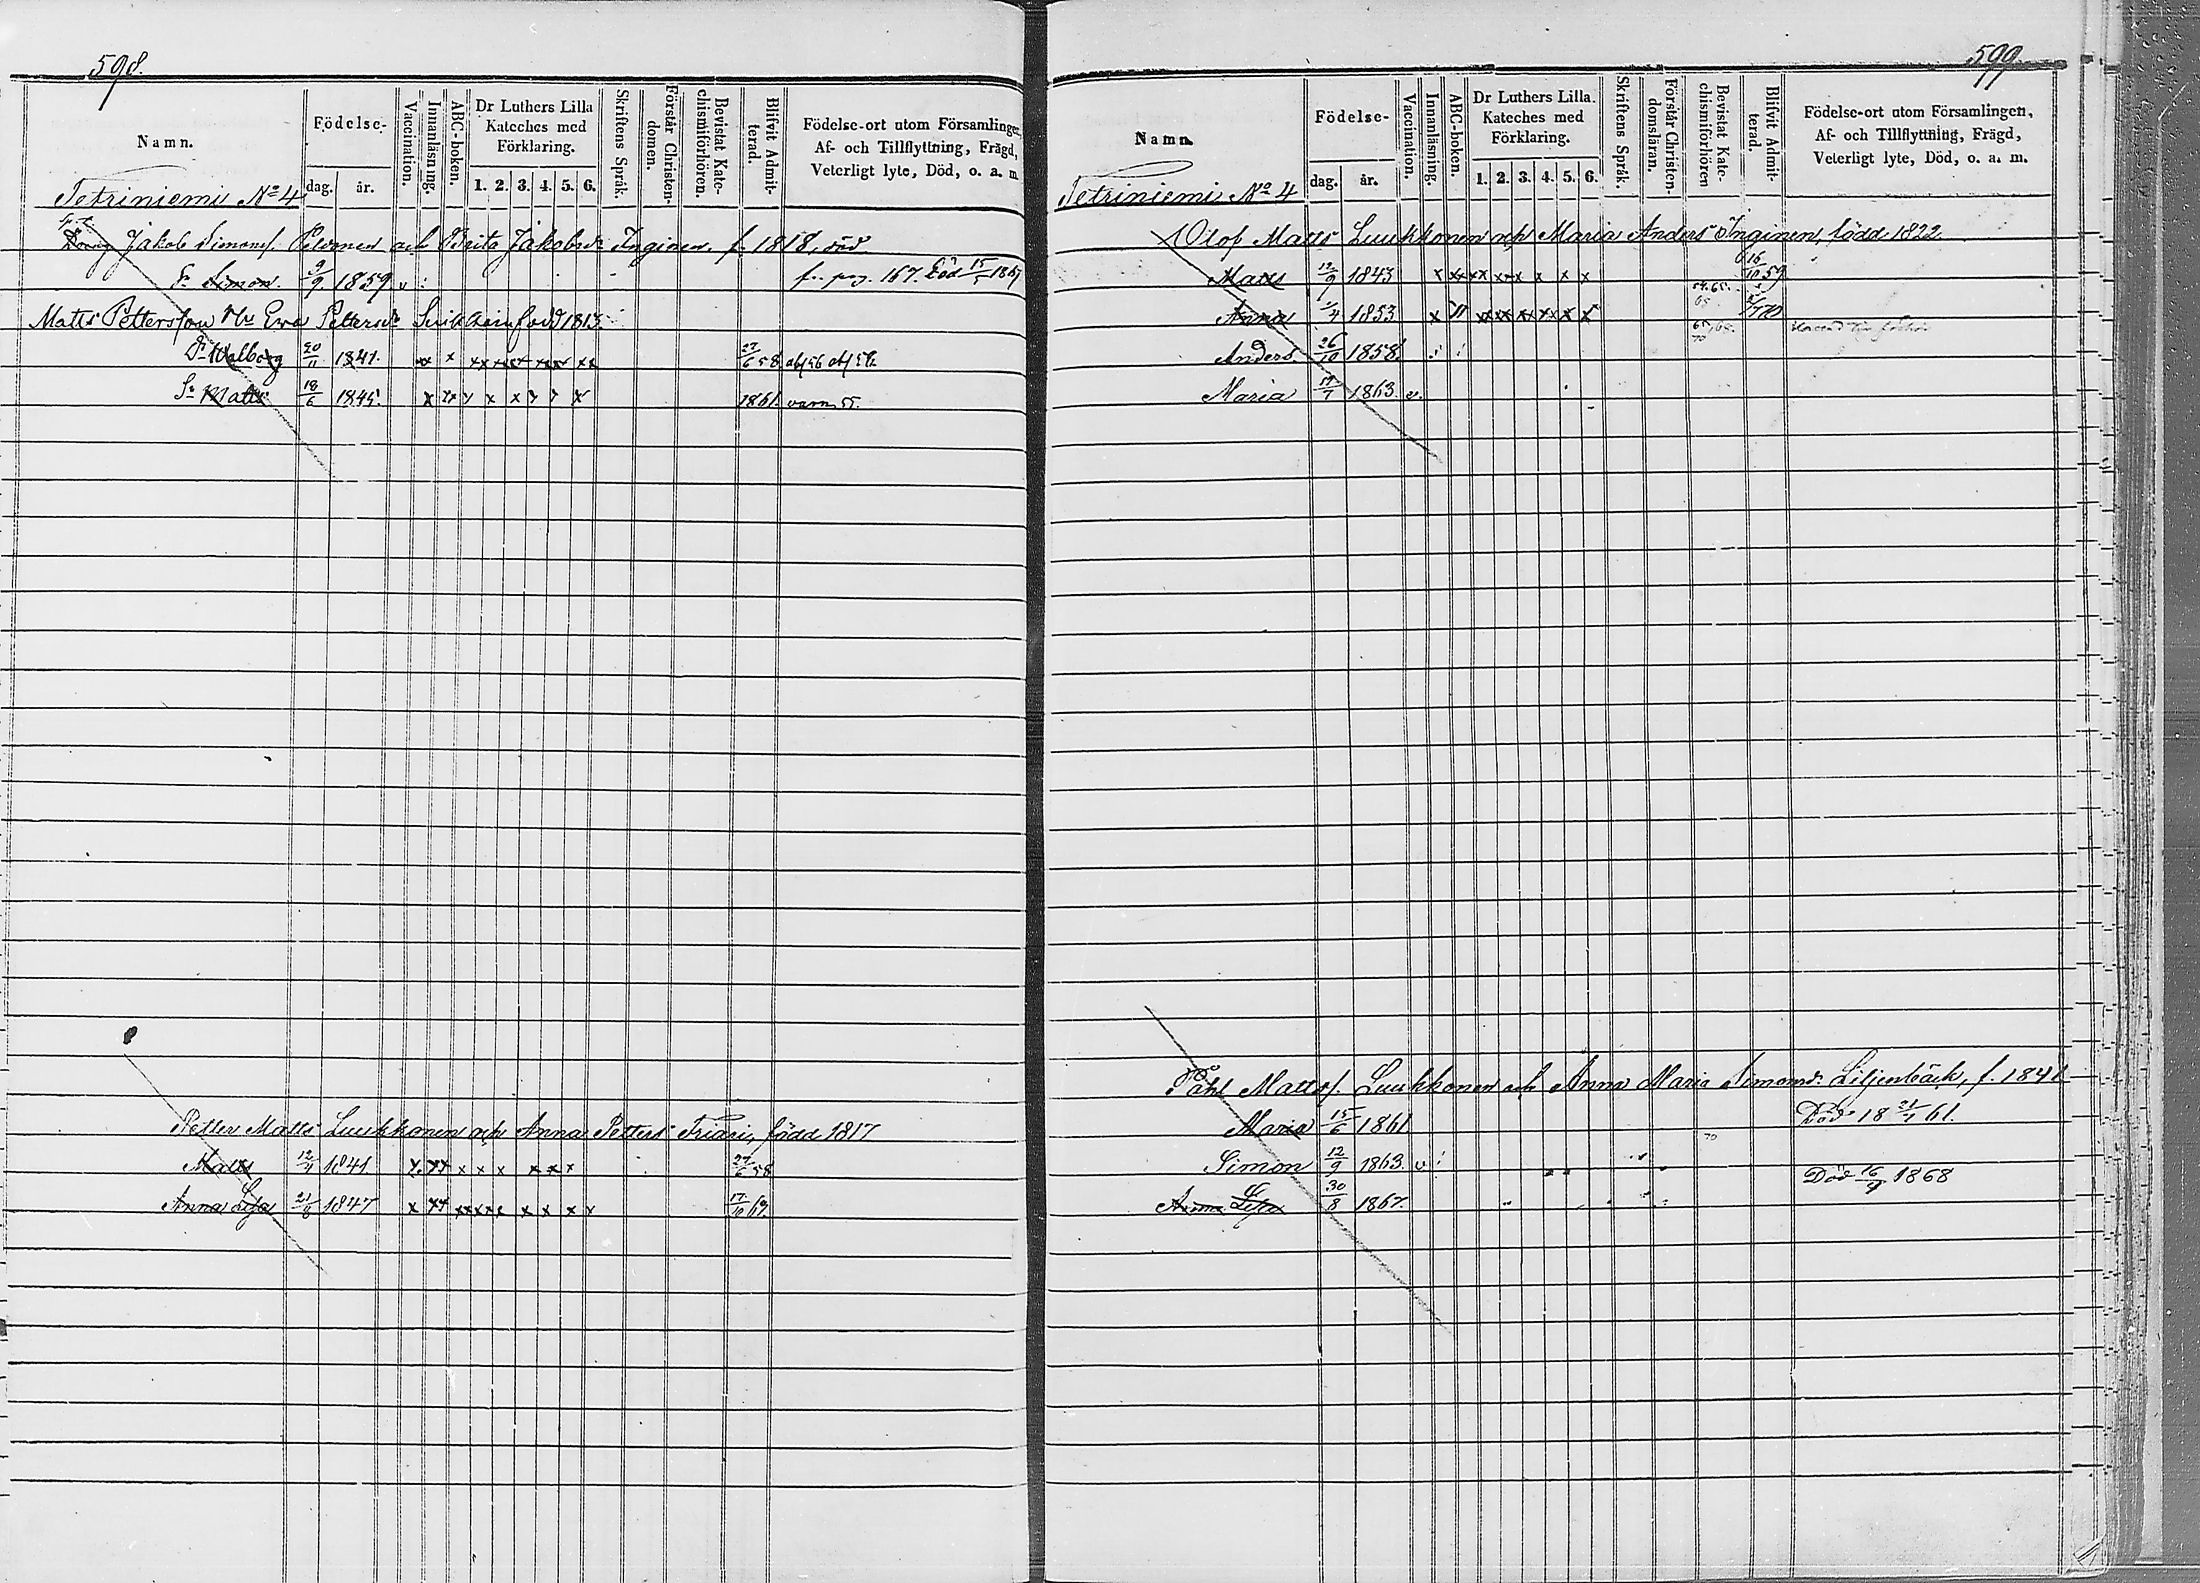 598.
Namn.
Födelse-
dag. år.
Vaccination.
Innanläsning.
ABC-boken.
Dr Luthers Lilla
Kateches med
Förklaring.
1. 2. 3. 4. 5. 6.
Skriftens Språk.
Förstår Christen-
domen.
Bevistat Kate-
chismiförhören.
Blifvit Admit-
terad.
Födelse-ort utom Församlingen,
Af- och Tillflyttning, Frägd,
Veterligt lyte, Död, o. a. m.
Tetriniemi No 4
Jakob Simonss. Peldonen och Brita Jakobsdr Inginen f. 1818, död
Sn Simon. 9/9 1859 v f. pag. 167. Död 15/5 1867
Matts Pettersson Hu Eva Pettersdr född 1813
Dr Walborg 20/11 1841. x x x xx xx xx xx xx 27/6 58
Sn Matts 18/6 1845. x xx x x x x x x 1861.
Petter Matts Luukkonen och Anna Petters Triari, född 1817
Matts 12/4 1841 x xx x x x x x x 27/6 58
Anna Lisa 21/8 1847 x xx xx xx x x x x 17/10 69.
599.
Namn.
Födelse-
dag. år.
Vaccination.
Innanläsning.
ABC-boken.
Dr Luthers Lilla.
Kateches med
Förklaring.
1. 2. 3. 4. 5. 6.
Skriftens Språk.
Förstår Christen-
domsläran.
Bevistat Kate-
chismiförhören
Blifvit Admit-
terad.
Födelse-ort utom Församlingen,
Af- och Tillflyttning, Frägd,
Veterligt lyte, Död, o. a. m.
Tetriniemi No 4
Olof Matts Luukkonen och Maria Anders Inginen, född 1822.
Matts 12/9 1843 x xx xx xx x x x 16/10 59
Anna 1/4 1853 x xx xx xx xx x
Anders. 26/10 1858
Maria 17/7 1863. v.
Påhl Mattss. Luukkonen och Anna Maria Simonsdr Liljenbäck, f. 1841
Maria 15/6 1861 Död 18 21/7 61.
Simon 12/9 1863. v
Anna Lisa 30/8 1867. Död 16/7 1868